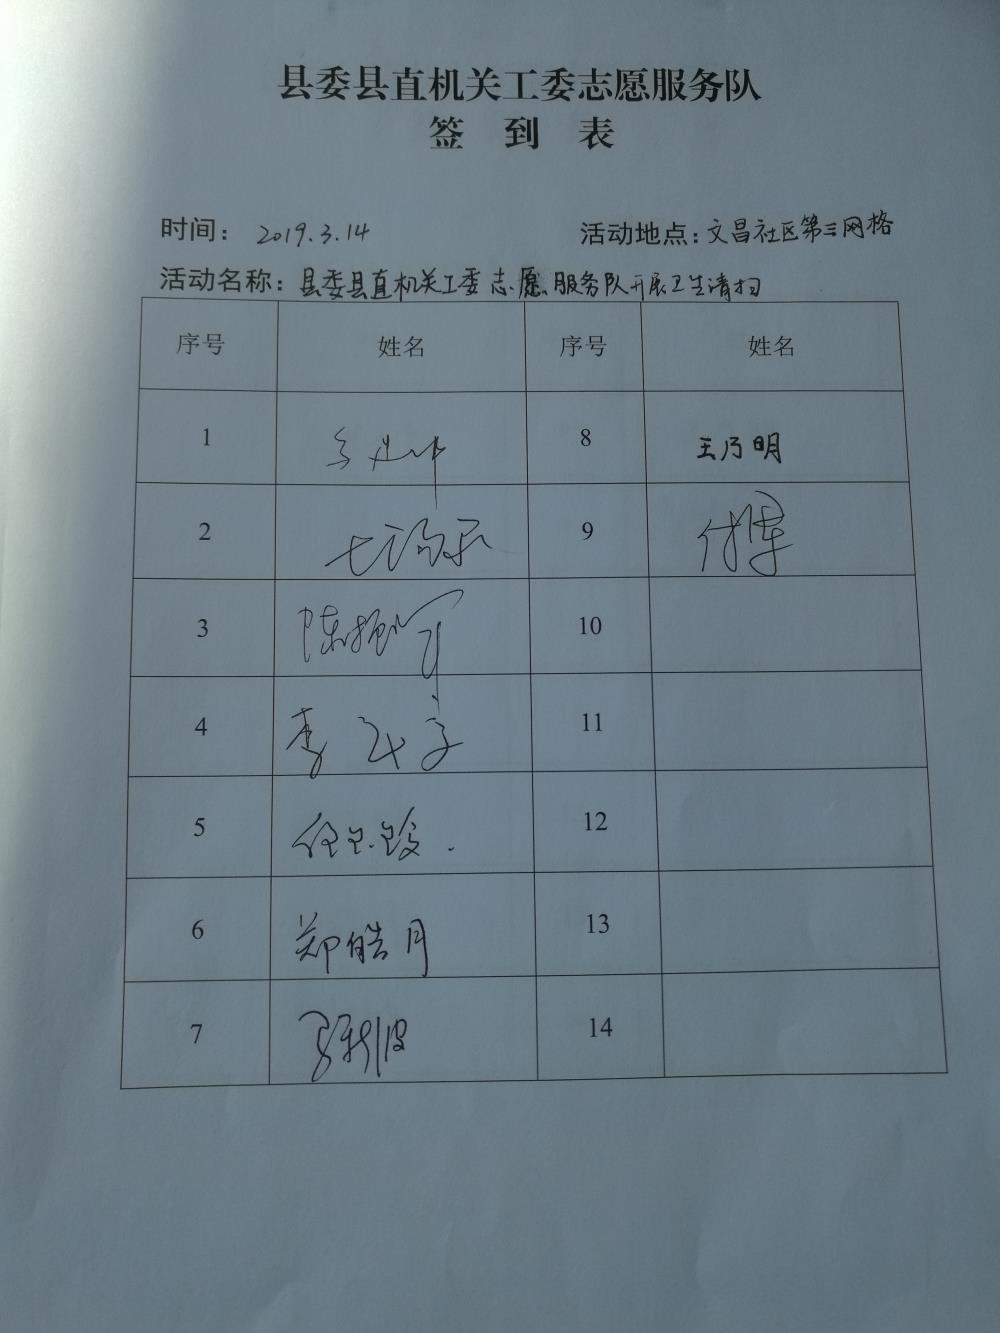 县委县直机关工委志愿服务队
签到表
时间：2019.3.14 活动地点：文昌社区第三网格
活动名称：县委县直机关工委志愿服务队开展卫生清扫
序号 姓名 序号 姓名
1 8 王乃明
2 9
3 陈振军 10
4 李 11
5 12
6 郑皓月 13
7 14